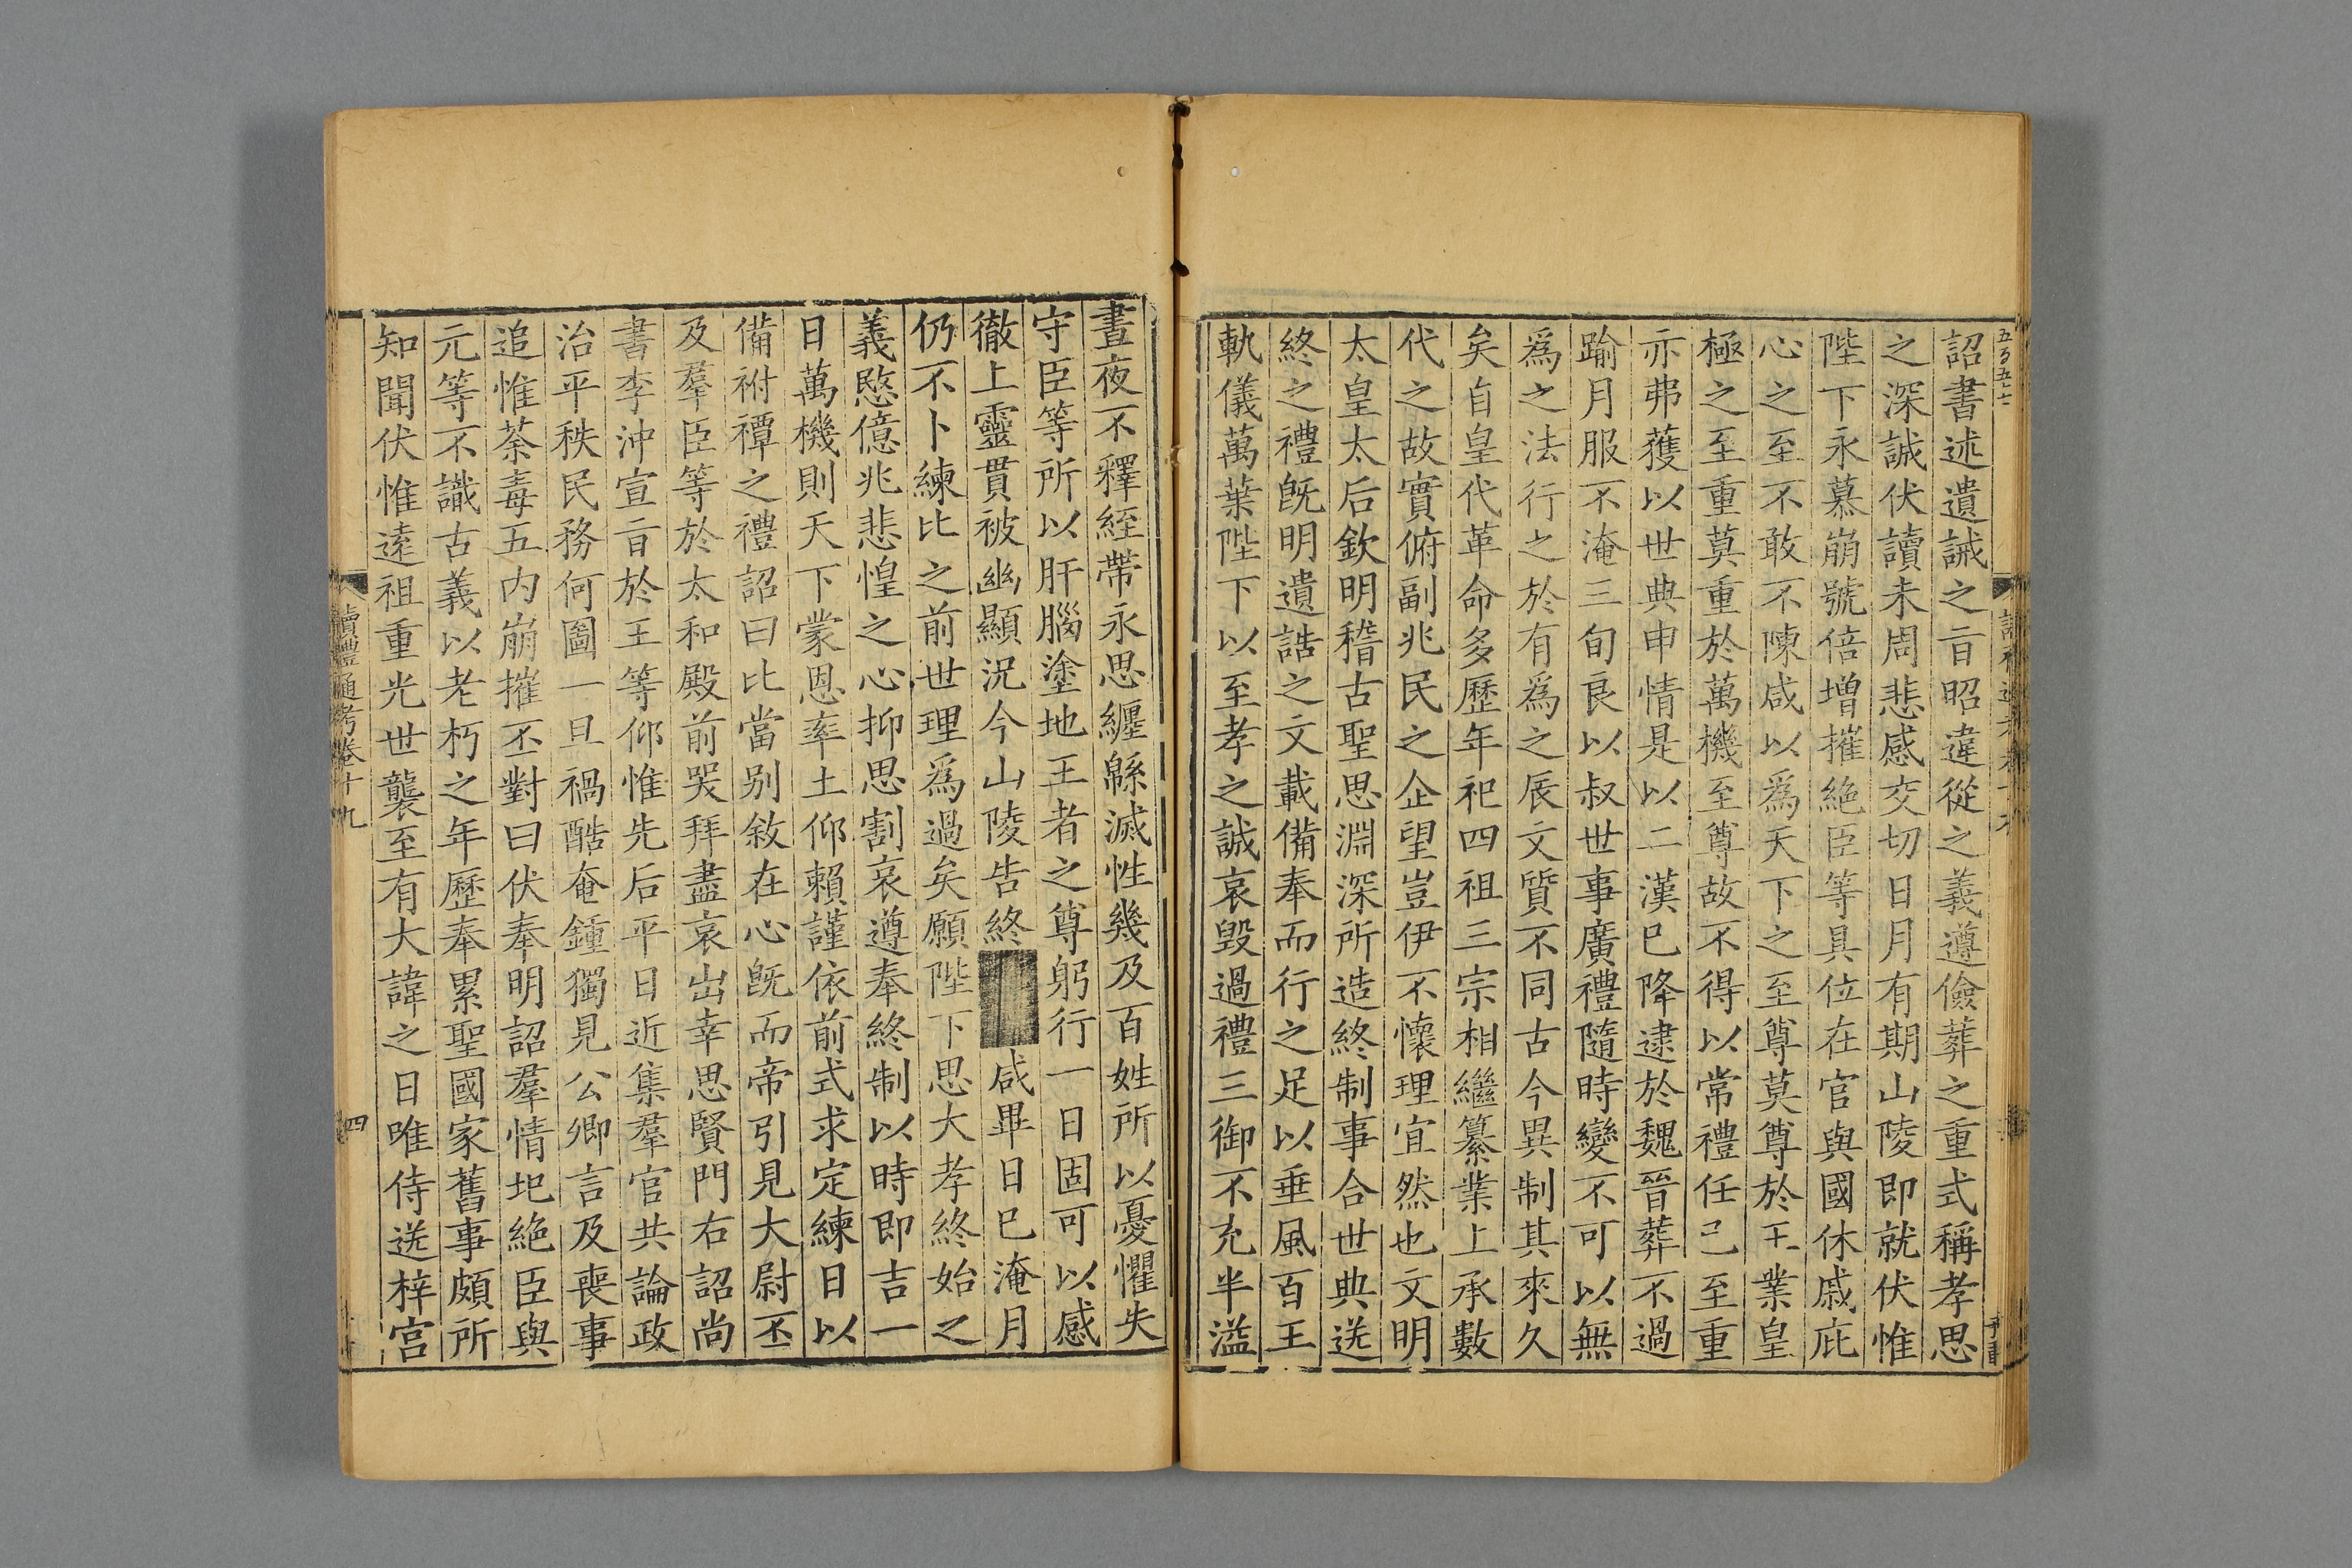 詔書述遺誡之㫖昭違從之義遵儉葬之重式稱孝思
之深誠伏讀未周悲感交切日月有期山陵即就伏惟
陛下永慕崩號倍增摧絕臣等具位在官與國休戚庇
心之至不敢不陳咸以爲天下之至尊莫尊於王業皇
極之至重莫重於萬機至尊故不得以常禮任己至重
亦弗獲以世典申情是以二漢已降逮於魏晉葬不過
踰月服不淹三旬良以叔世事廣禮隨時變不可以無
爲之法行之於有爲之辰文質不同古今異制其來久
矣自皇代革命多歷年祀四祖三宗相繼纂業上承數
代之故實俯副兆民之企望豈伊不懷理宜然也文明
太皇太后欽明稽古聖思淵深所造終制事合世典送
終之禮旣明遺誥之文載備奉而行之足以垂風百王
軌儀萬葉陛下以至孝之誠哀毀過禮三御不充半溢
晝夜不釋絰帶永思纏緜滅性幾及百姓所以憂懼失
守臣等所以肝腦塗地王者之尊躬行一日固可以感
徹上靈貫被幽顯況今山陵告終咸畢日已淹月
仍不卜練比之前世理爲過矣願陛下思大孝終始之
義愍億兆悲惶之心抑思割哀遵奉終制以時即吉一
日萬機則天下蒙恩率土仰賴謹依前式求定練日以
備祔禫之禮詔曰比當别敘在心旣而帝引見大尉丕
及羣臣等於太和殿前哭拜盡哀出幸思賢門右詔尚
書李沖宣㫖於王等仰惟先后平日近集羣官共論政
治平秩民務何圖一旦禍酷奄鍾獨見公卿言及喪事
追惟荼毒五内崩摧丕對曰伏奉明詔羣情圯絕臣與
元等不識古義以老朽之年歷奉累聖國家舊事頗所
知聞伏惟遠祖重光世襲至有大諱之日唯侍送梓宮
讀禮通考卷十九
四